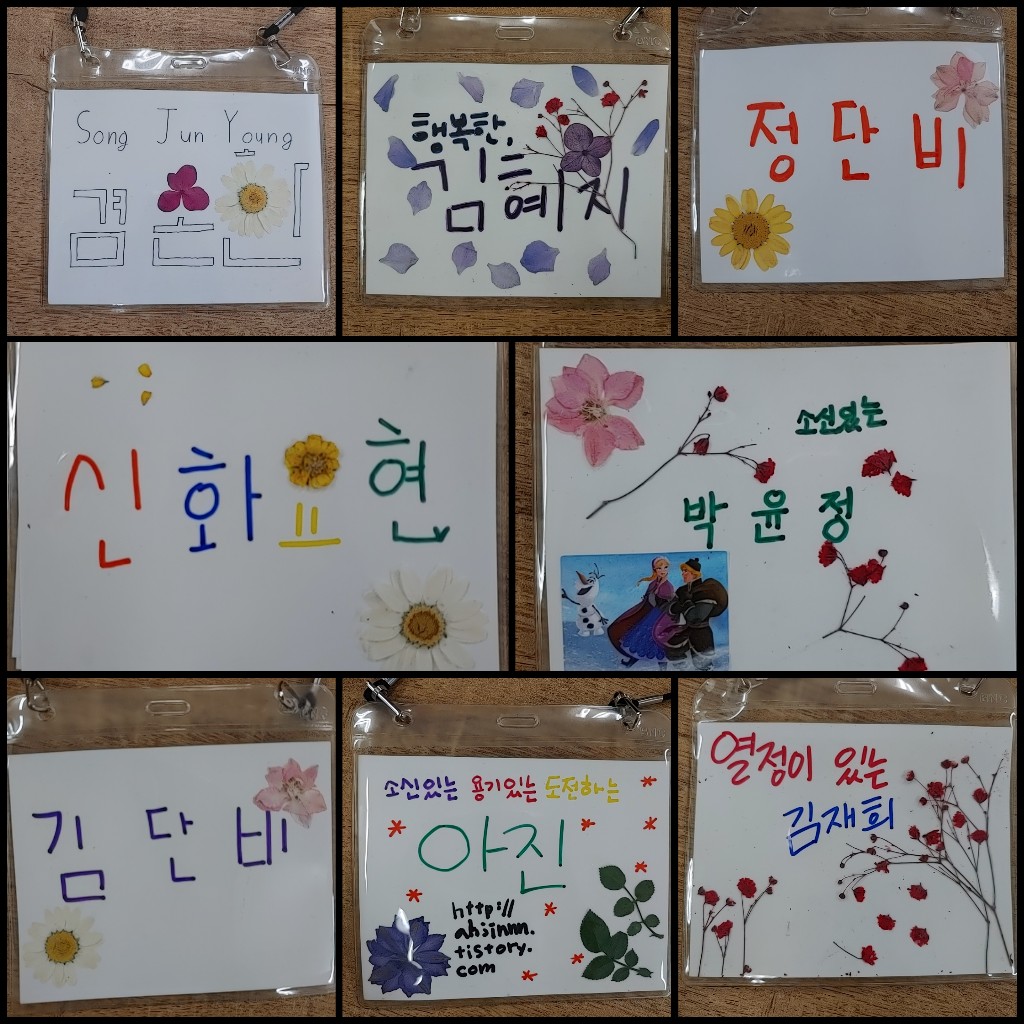 Song Jun Young
행복한,
김혜지
정단비
신화요현
소신있는
박윤정
김단비
소신있는 용기있는 도전하는
아진
http://
ahjinnn.
tistory.
com
열정이 있는
김재희